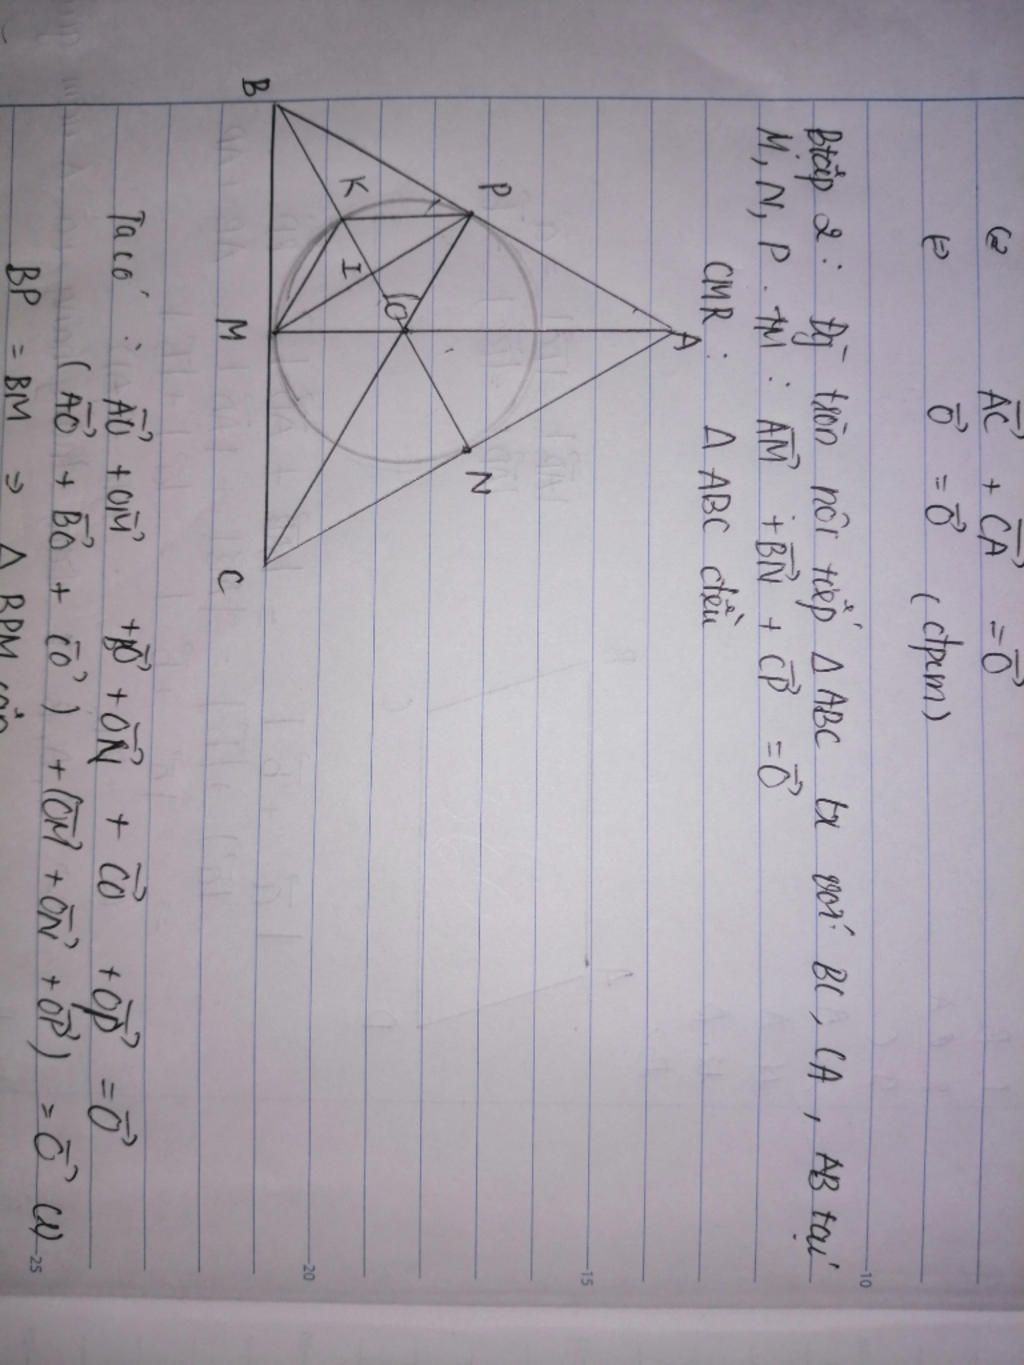 ⇔ AC⃗ + CA⃗ = O⃗
⇔ O⃗ = O⃗ (đpcm)
Btập 2: đg tròn nội tiếp Δ ABC tx với BC, CA, AB tại
M, N, P. tM: AM⃗ + BN⃗ + CP⃗ = O⃗
CMR: Δ ABC đều
A
P
N
B
K
I
O
M
C
Ta có: AO⃗ + OM⃗ + BO⃗ + ON⃗ + CO⃗ + OP⃗ = O⃗
(AO⃗ + BO⃗ + CO⃗) + (OM⃗ + ON⃗ + OP⃗) = O⃗ (1)
BP = BM ⇒ Δ BPM cân
10
15
20
25